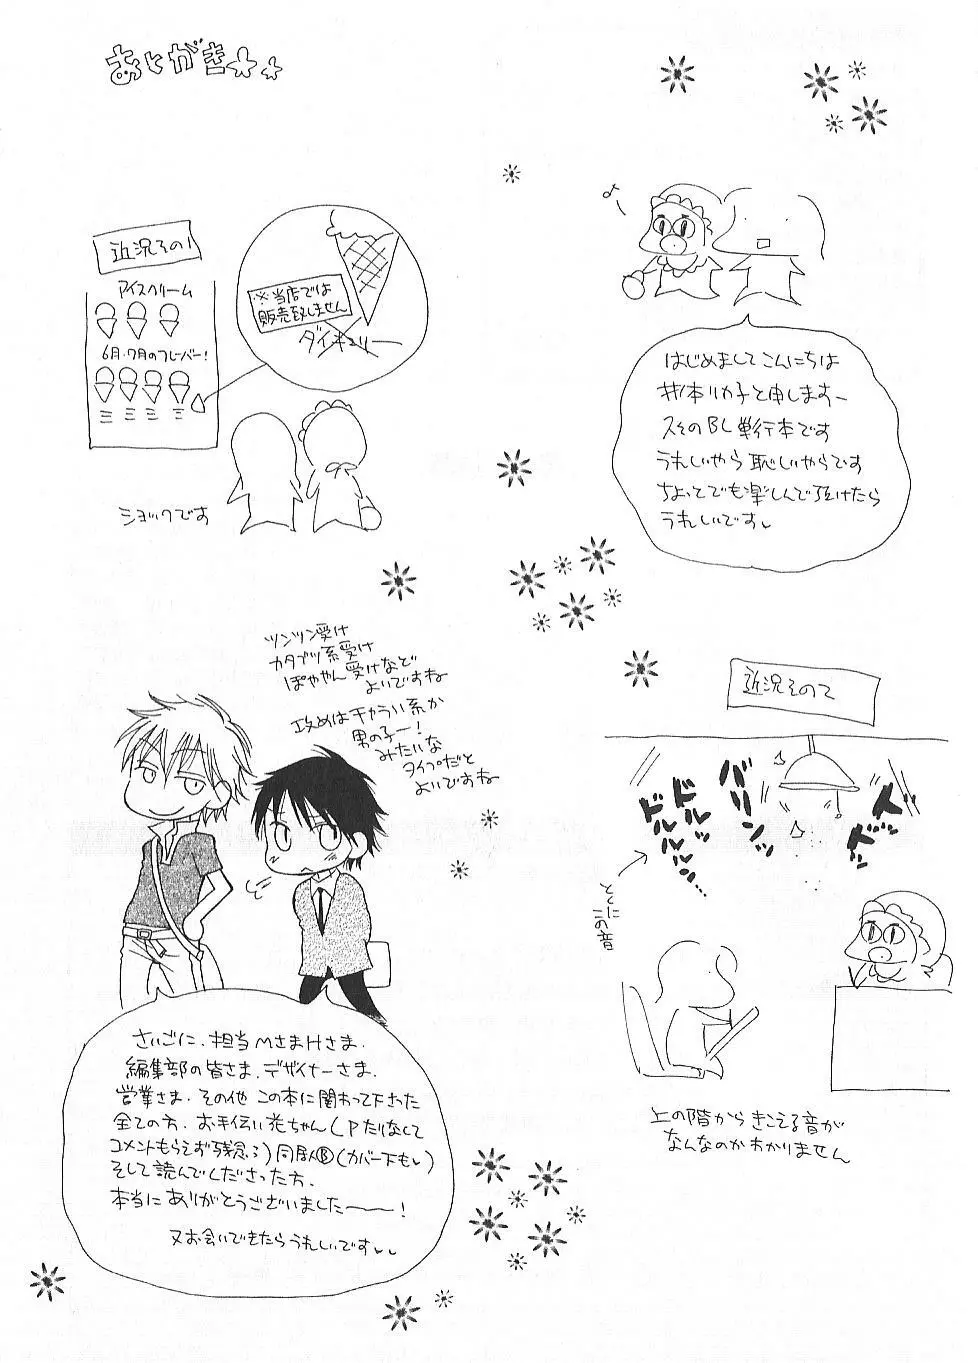 あとがき
はじめましてこんにちは
井本リカ子と申しますー
2冊めのBL単行本です
うれしいやら恥しいやらです
ちょっとでも楽しんで頂けたら
うれしいです
近況その1
アイスクリーム
6月・7月のフレーバー!
※当店では
販売致しません
ダイキュリー
ショックです
近況その2
ドルッ
ドルルルン…
バリンッ
ドドッ
とくに
この音
上の階からきこえる音が
なんなのかわかりません
ツンツン受け
カタブツ系受け
ぽややん受けなど
よいですね
攻めはチャラい系か
男の子ー!
みたいな
タイプだと
よいですね
さいごに、担当MさまHさま、
編集部の皆さま、デザイナーさま、
営業さま、その他この本に関わって下さった
全ての方、お手伝い花ちゃん(Pたりなくて
コメントもらえず残念;)同居人Ⓑ(カバー下も)
そして読んでくださった方、
本当にありがとうございました〜〜!
又お会いできたらうれしいです